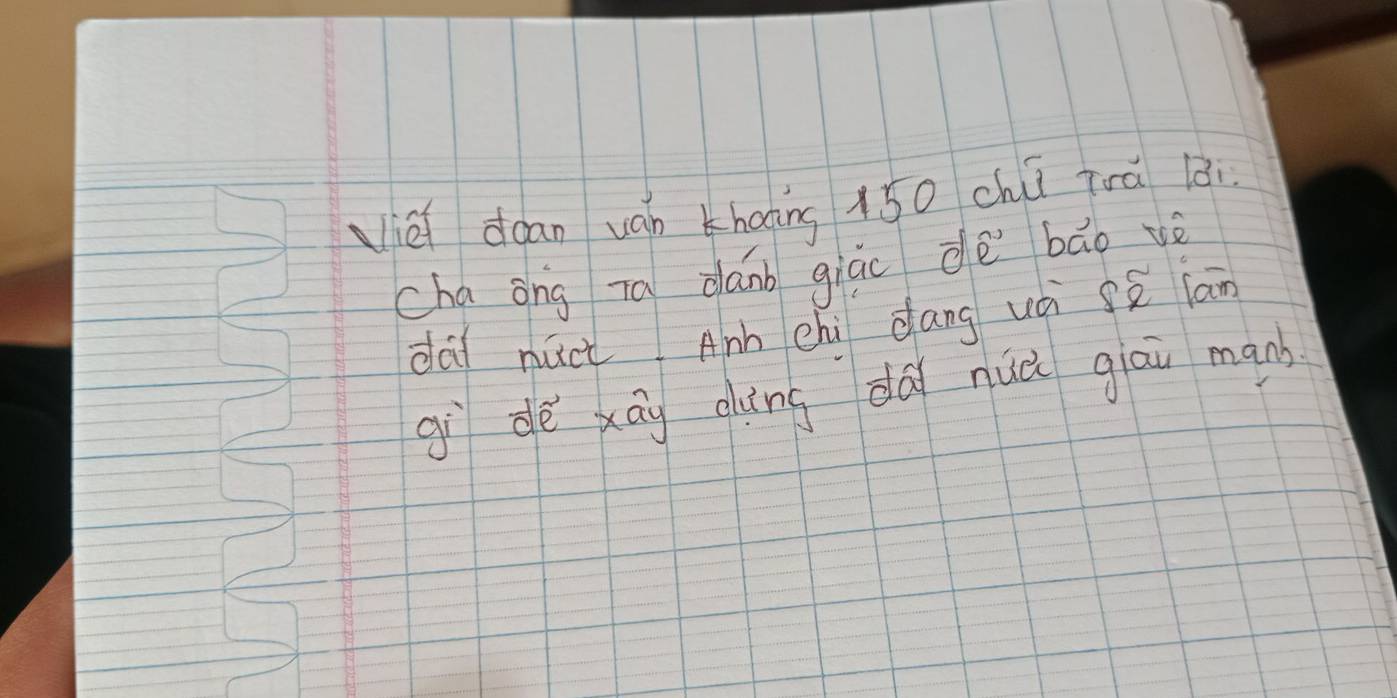 Viết đoạn văn khoảng 150 chữ trả lời:
Cha ông ta đánh giặc để bảo vệ
đất nước. Anh chị đang và sẽ làm
gì để xây dựng đất nước giàu mạnh.